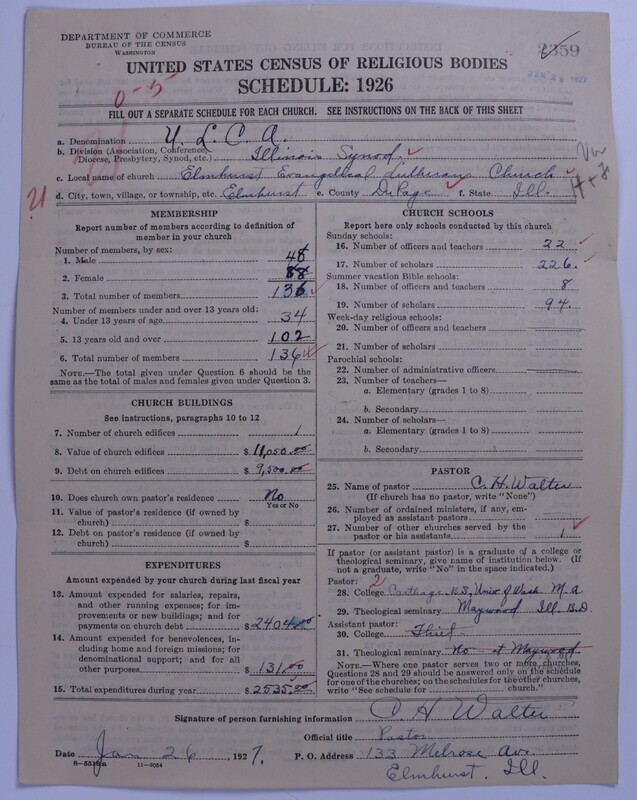 DEPARTMENT OF COMMERCE
BUREAU OF THE CENSUS
WASHINGTON
2359
UNITED STATES CENSUS OF RELIGIOUS BODIES
SCHEDULE: 1926
0-5
FILL OUT A SEPARATE SCHEDULE FOR EACH CHURCH. SEE INSTRUCTIONS ON THE BACK OF THIS SHEET
a. Denomination U. L. C. A.
b. Division (Association, Conference, Diocese, Presbytery, Synod, etc.) Illinois Synod
c. Local name of church Elmhurst Evangelical Lutheran Church
d. City, town, village, or township, etc. Elmhurst e. County DuPage f. State Ill.
MEMBERSHIP
Report number of members according to definition of
member in your church
Number of members, by sex:
1. Male 48
2. Female 88
3. Total number of members 136
Number of members under and over 13 years old:
4. Under 13 years of age 34
5. 13 years old and over 102
6. Total number of members 136
NOTE.—The total given under Question 6 should be
same as the total of males and females given under Question 3.
CHURCH BUILDINGS
See instructions, paragraphs 10 to 12
7. Number of church edifices 1
8. Value of church edifices $ 11,050.00
9. Debt on church edifices $ 9,500.00
10. Does church own pastor's residence No
Yes or No
11. Value of pastor's residence (if owned by
church) $
12. Debt on pastor's residence (if owned by
church) $
EXPENDITURES
Amount expended by your church during last fiscal year
13. Amount expended for salaries, repairs,
and other running expenses; for im-
provements or new buildings; and for
payments on church debt $ 2404.00
14. Amount expended for benevolences, in-
cluding home and foreign missions; for
denominational support; and for all
other purposes $ 131.00
15. Total expenditures during year $ 2535.00
CHURCH SCHOOLS
Report here only schools conducted by this church
Sunday schools:
16. Number of officers and teachers 22
17. Number of scholars 226.
Summer vacation Bible schools:
18. Number of officers and teachers 8
19. Number of scholars 94.
Week-day religious schools:
20. Number of officers and teachers
21. Number of scholars
Parochial schools:
22. Number of administrative officers
23. Number of teachers—
a. Elementary (grades 1 to 8)
b. Secondary
24. Number of scholars—
a. Elementary (grades 1 to 8)
b. Secondary
PASTOR
25. Name of pastor C. H. Walter
(If church has no pastor, write "None")
26. Number of ordained ministers, if any, em-
ployed as assistant pastors
27. Number of other churches served by the
pastor or his assistants 1
If pastor (or assistant pastor) is a graduate of a college or
theological seminary, give name of institution below. (If
not a graduate, write "No" in the space indicated.)
Pastor: 2
28. College Carthage B.S, Univ of Wash. M.A
29. Theological seminary Maywood Ill. B.D.
Assistant pastor:
30. College
31. Theological seminary No at Maywood
NOTE.—Where one pastor serves two or more churches,
Questions 28 and 29 should be answered only on the schedule
for one of the churches; on the schedules for the other churches,
write "See schedule for church."
Signature of person furnishing information C. H. Walter
Official title Pastor
Date Jan 26, 1927. P. O. Address 133 Melrose Ave.
8-5519a 11-9054
Elmhurst, Ill.